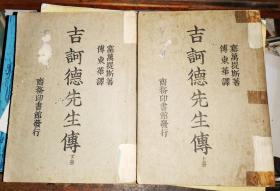 塞萬提斯著
傅東華譯
吉訶德先生傳
下冊
商務印書館發行
塞萬提斯著
傅東華譯
吉訶德先生傳
上冊
商務印書館發行